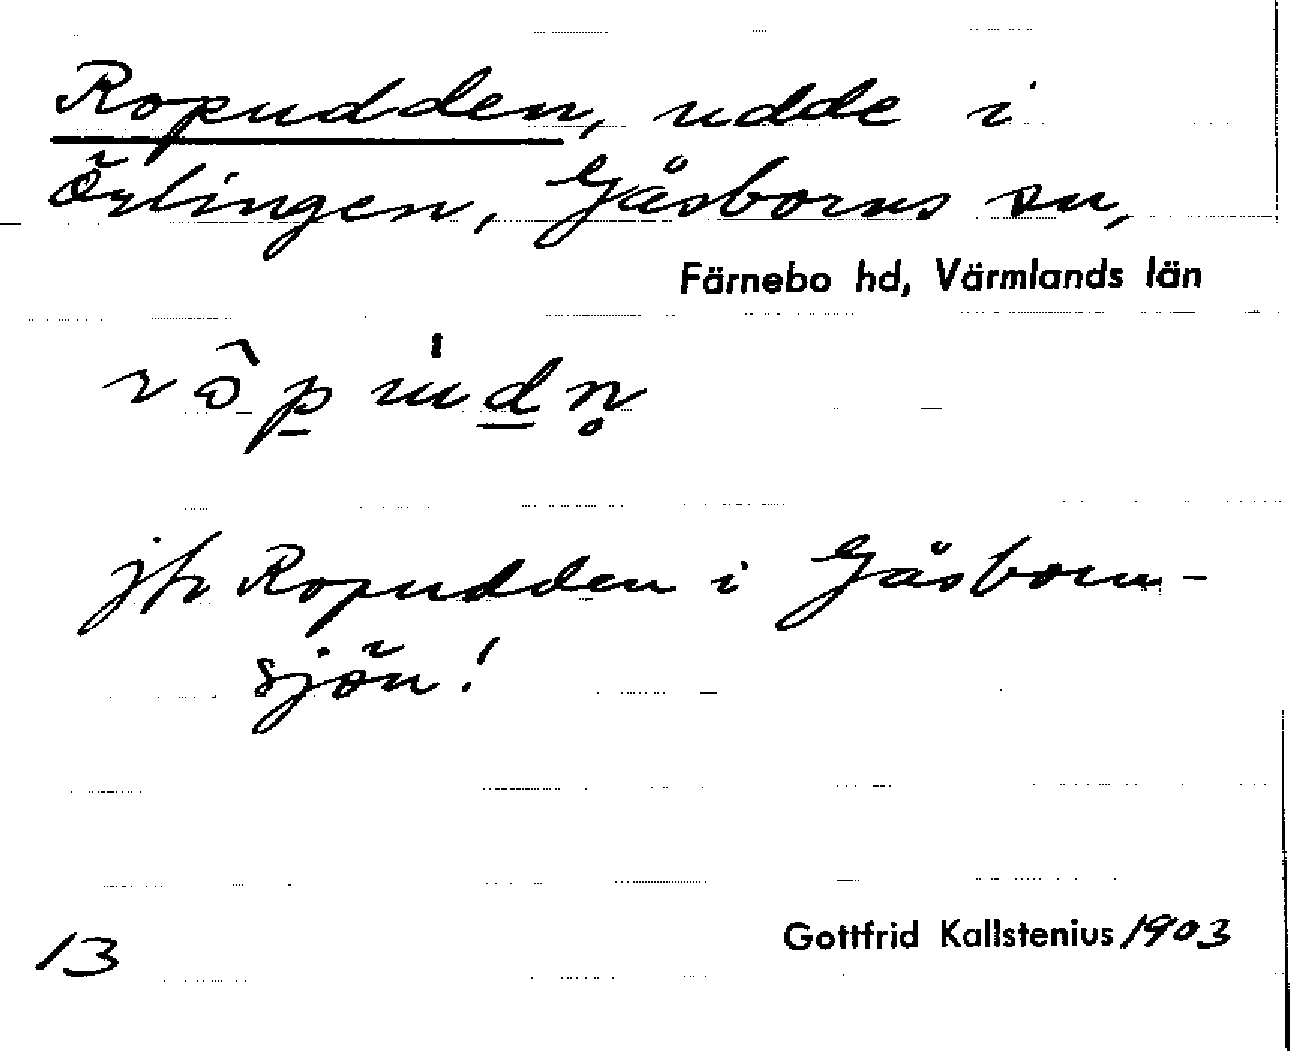 Ropudden, udde i
Örlingen, Gåsborns sn,
Färnebo hd, Värmlands län
jfr Ropudden i Gåsborn-
sjön!
13
Gottfrid Kallstenius 1903